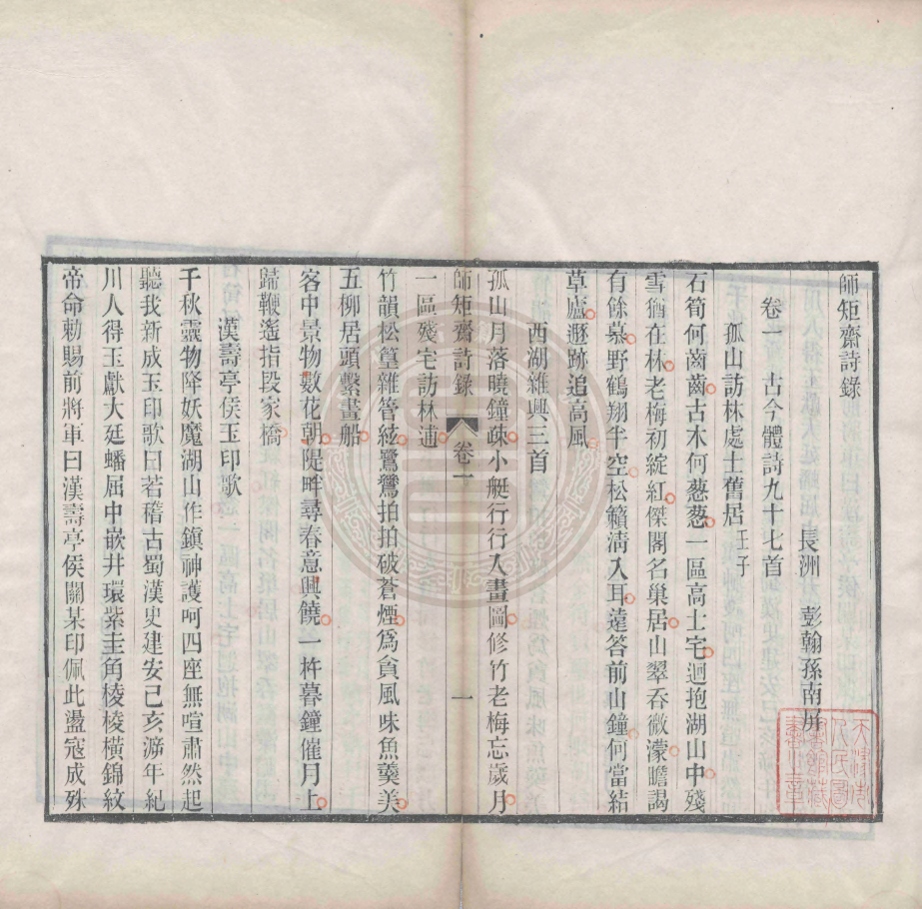 師矩齋詩錄
長洲 彭翰孫南屏
卷一 古今體詩九十七首
孤山訪林處士舊居壬子
石筍何齒齒古木何蔥蔥一區高士宅迴抱湖山中殘
雪猶在林老梅初綻紅傑閣名巢居山翠吞微濛瞻謁
有餘慕野鶴翔半空松籟清入耳遠答前山鐘何當結
草廬遯跡追高風
西湖雜興三首
孤山月落曉鐘疎小艇行行入畫圖修竹老梅忘歲月
師矩齋詩錄 卷一 一
一區殘宅訪林逋
竹韻松篁雜管絃鷺鷥拍拍破蒼煙爲貪風味魚羹美
五柳居頭繫畫船
客中景物數花朝隄畔尋春意興饒一杵暮鐘催月上
歸鞭遙指段家橋
漢壽亭侯玉印歌
千秋靈物降妖魔湖山作鎭神護呵四座無喧肅然起
聽我新成玉印歌曰若稽古蜀漢史建安己亥游年紀
川人得玉獻大廷蟠屈中嵌井環紫圭角棱棱橫錦紋
帝命勅賜前將軍曰漢壽亭侯關某印佩此盪寇成殊
天津市人民圖書館藏書之章